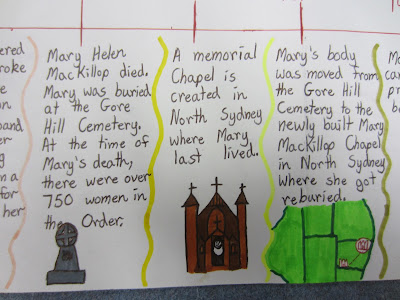 ered
roke
e
on
band
er
g
n a
for
her
Mary Helen
MacKillop died.
Mary was buried
at the Gore
Hill Cemetery.
At the time of
Mary's death,
there were over
750 women in
the Order.
A memorial
Chapel is
created in
North Sydney
where Mary
last lived.
Mary's body
was moved from
the Gore Hill
Cemetery to the
newly built Mary
MacKillop Chapel
in North Sydney
where she got
reburied.